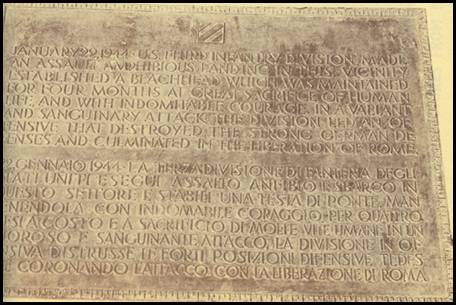 JANUARY 22 1944 · U.S. THIRD INFANTRY DIVISION MADE
AN ASSAULT AMPHIBIOUS LANDING IN THIS VICINITY
ESTABLISHED A BEACHEAD WHICH WAS MAINTAINED
FOR FOUR MONTHS AT GREAT SACRIFICE OF HUMAN
LIFE, AND WITH INDOMITABLE COURAGE. IN VALIANT
AND SANGUINARY ATTACK THE DIVISION LED AN OF
FENSIVE THAT DESTROYED THE STRONG GERMAN DE
FENSES AND CULMINATED IN THE LIBERATION OF ROME.
22 GENNAIO 1944 · LA TERZA DIVISIONE DI FANTERIA DEGLI
STATI UNITI ESEGUI ASSALTO ANFIBIO E SBARCO IN
QUESTO SETTORE E STABILI UNA TESTA DI PONTE, MAN
TENENDOLA CON INDOMABILE CORAGGIO, PER QUATTRO
MESI A COSTO E A SACRIFICIO DI MOLTE VITE UMANE. IN UN
VALOROSO E SANGUINANTE ATTACCO, LA DIVISIONE IN OF
FENSIVA DISTRUSSE LE FORTI POSIZIONI DIFENSIVE TEDES
CHE CORONANDO L'ATTACCO CON LA LIBERAZIONE DI ROMA.